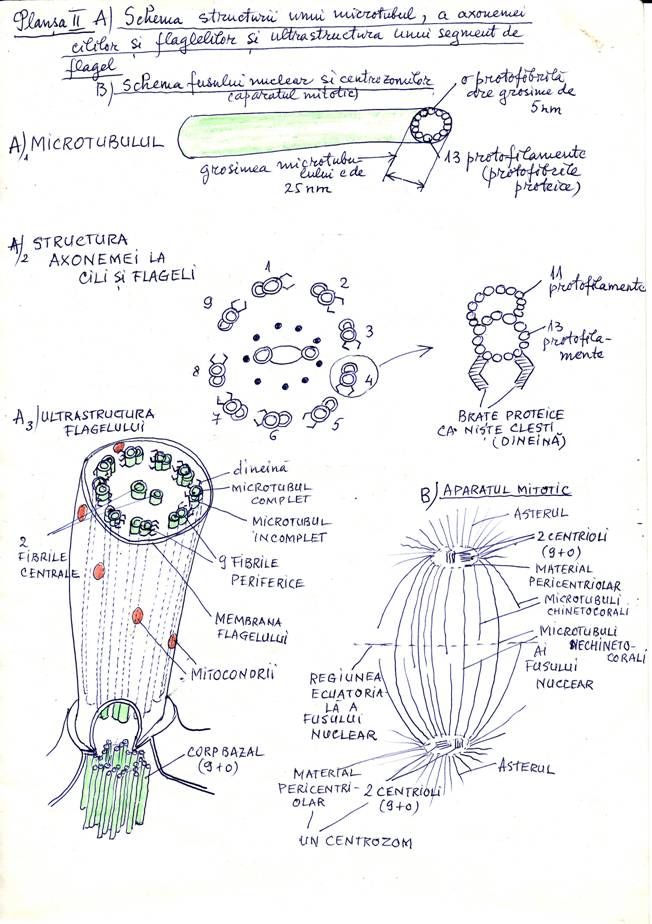 Planșa II A) Schema structurii unui microtubul, a axonemei
cililor și flaglelilor și ultrastructura unui segment de
flagel
B) Schema fusului nuclear si centrozomilor
(aparatul mitotic)
o protofibrilă
are grosime de
5nm
A)1 MICROTUBULUL
grosimea microtubu-
lului e de
25 nm
13 protofilamente
(protofibrile
proteice)
A/2 STRUCTURA
AXONEMEI LA
CILI ȘI FLAGELI
1
2
3
4
5
6
7
8
9
11
protofilamente
13
protofila-
mente
BRATE PROTEICE
CA NISTE CLESTI
(DINEINĂ)
A3/ULTRASTRUCTURA
FLAGELULUI
dineină
MICROTUBUL
COMPLET
MICROTUBUL
INCOMPLET
2
FIBRILE
CENTRALE
9 FIBRILE
PERIFERICE
MEMBRANA
FLAGELULUI
MITOCONDRII
CORP BAZAL
(9+0)
B) APARATUL MITOTIC
ASTERUL
2 CENTRIOLI
(9+0)
MATERIAL
PERICENTRIOLAR
MICROTUBULI
CHINETOCORALI
MICROTUBULI
NECHINETO-
CORALI
AI
FUSULUI
NUCLEAR
REGIUNEA
ECUATORIA-
LĂ A
FUSULUI
NUCLEAR
ASTERUL
MATERIAL
PERICENTRI-
OLAR
2 CENTRIOLI
(9+0)
UN CENTROZOM